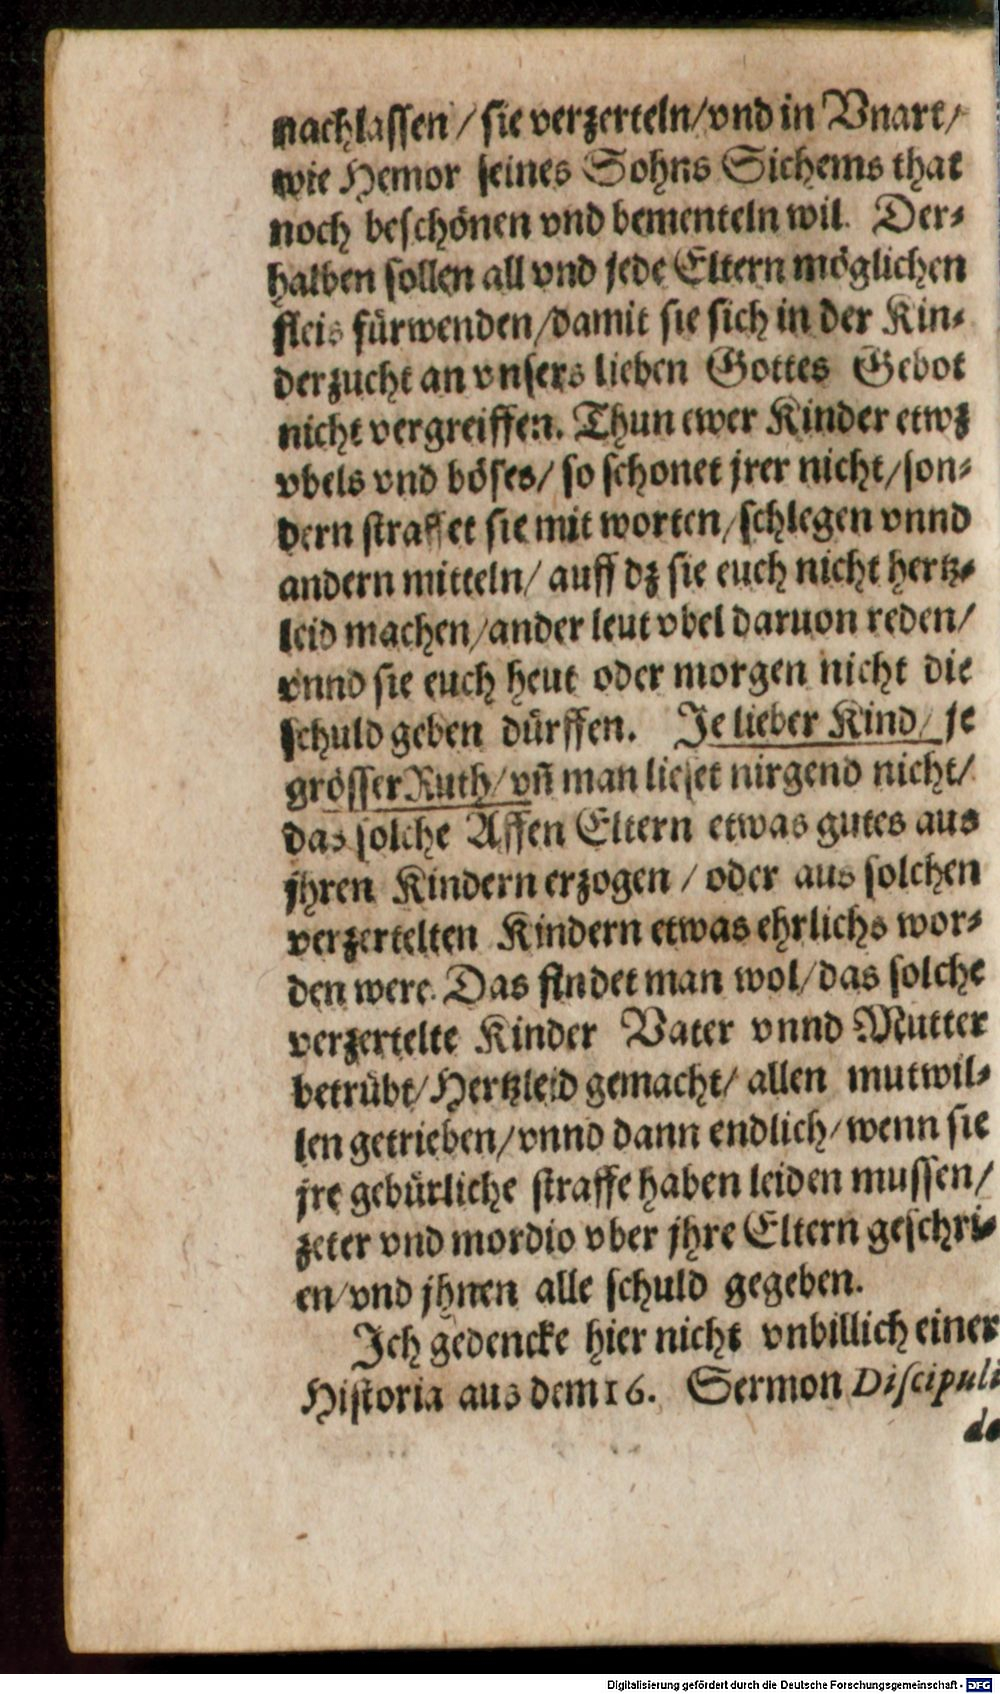 nachlassen / sie verzerteln/vnd in Vnart/
wie Hemor seines Sohns Sichems that
noch beschönen vnd bementeln wil. Der⸗
halben sollen all vnd jede Eltern möglichen
fleis fürwenden/damit sie sich in der Kin⸗
derzucht an vnsers lieben Gottes Gebot
nicht vergreiffen. Thun ewer Kinder etwz
vbels vnd böses/ so schonet jrer nicht/son⸗
dern straffet sie mit worten/schlegen vnnd
andern mitteln/ auff dz sie euch nicht hertz⸗
leid machen/ander leut vbel daruon reden/
vnnd sie euch heut oder morgen nicht die
schuld geben dürffen. Je lieber Kind/ je
grösser Ruth/vn̄ man lieset nirgend nicht/
das solche Affen Eltern etwas gutes aus
jhren Kindern erzogen / oder aus solchen
verzertelten Kindern etwas ehrlichs wor⸗
den were. Das findet man wol/das solche
verzertelte Kinder Vater vnnd Mutter
betrübt/Hertzleid gemacht/ allen mutwil⸗
len getrieben/vnnd dann endlich/wenn sie
jre gebürliche straffe haben leiden mussen/
zeter vnd mordio vber jhre Eltern geschri⸗
en/vnd jhnen alle schuld gegeben.
Ich gedencke hier nicht vnbillich einer
Historia aus dem 16. Sermon Discipuli
de
Digitalisierung gefördert durch die Deutsche Forschungsgemeinschaft - DFG